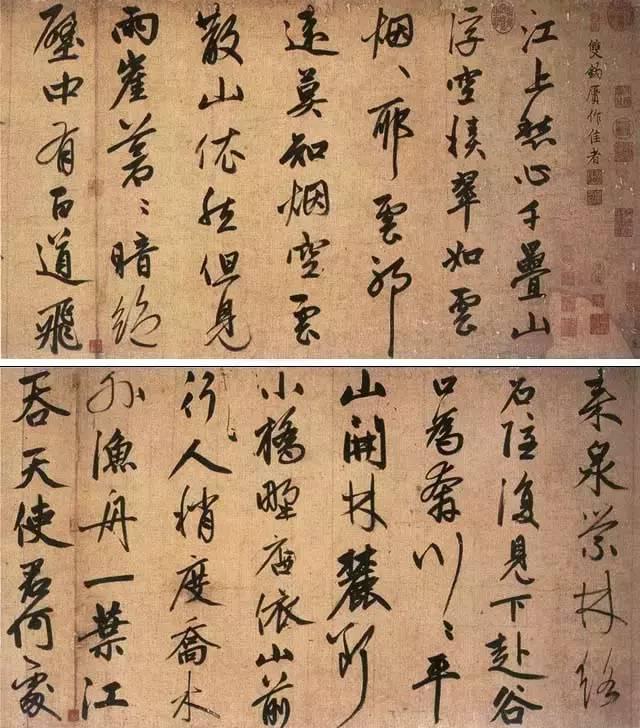 雙鈎贋作佳者
江上愁心千疊山
浮空積翠如雲
烟、耶雲耶
遠莫知烟空雲
散山依然但見
兩崖蒼、暗絶
壁中有百道飛
来泉縈林絡
石隱復見下赴谷
口為奔川、平
山開林麓斷
小橋野店依山前
行人稍度喬木
外漁舟一葉江
吞天使君何處